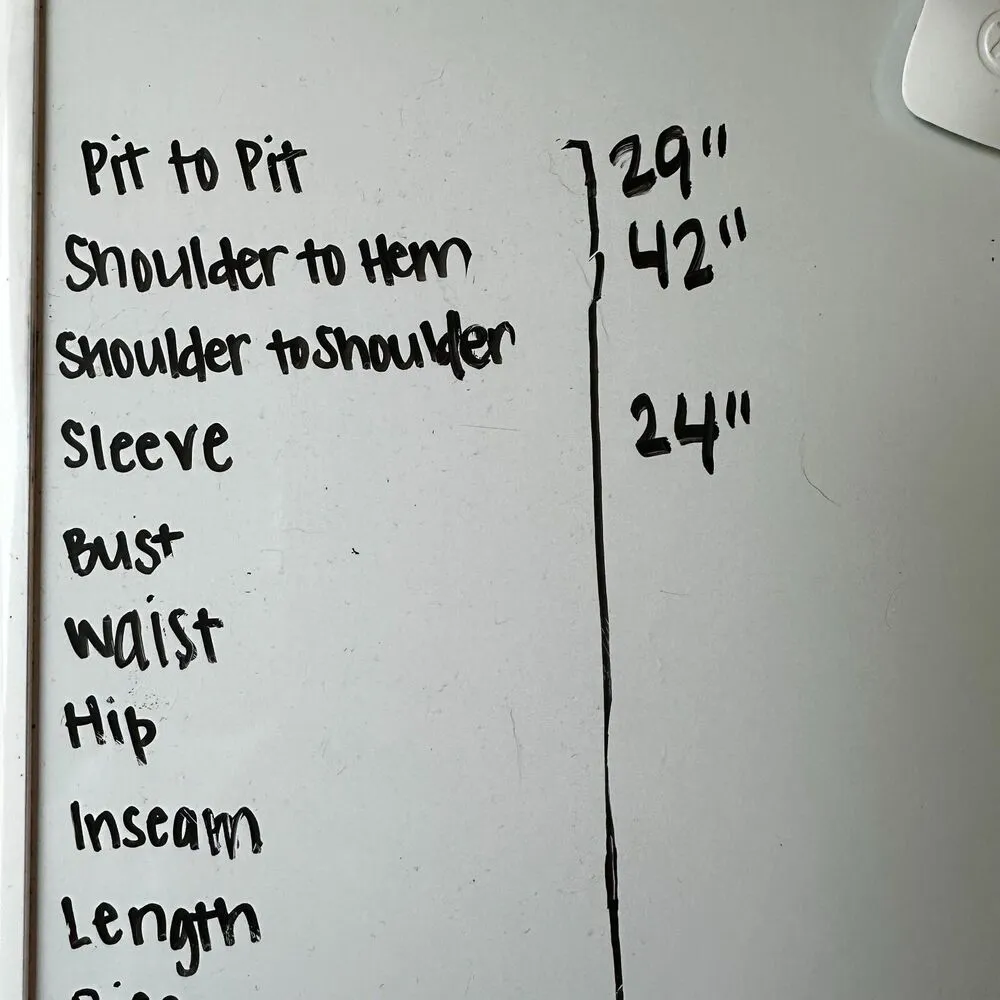 Pit to Pit 29"
Shoulder to Hem 42"
Shoulder to Shoulder
Sleeve 24"
Bust
Waist
Hip
Inseam
Length